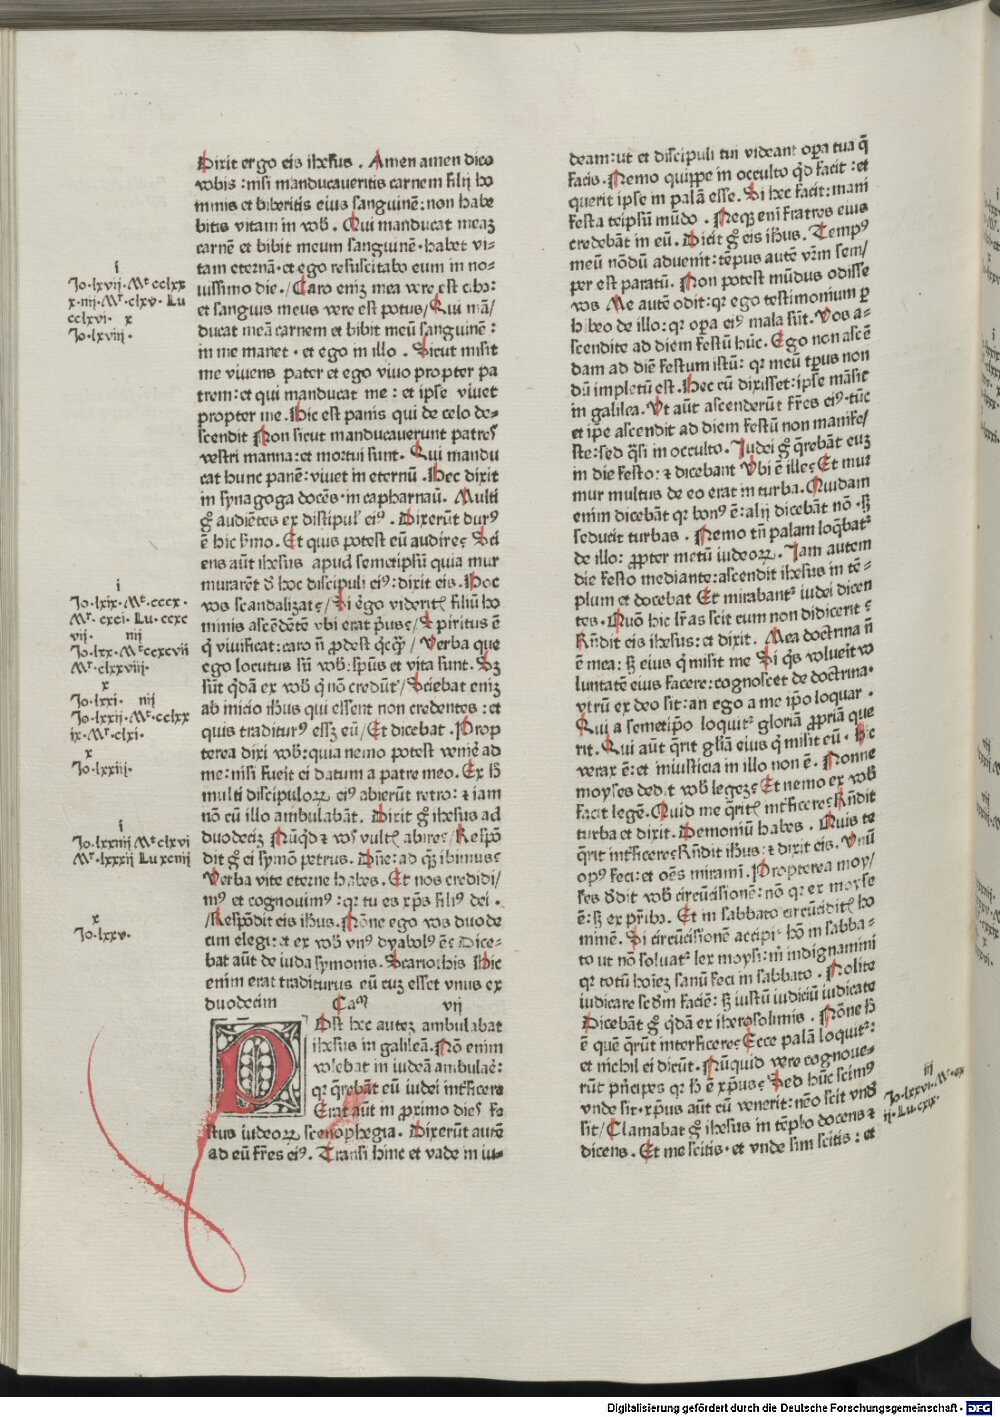 Dixit ergo eis ihesus . Amen amen dico
vobis : nisi manducaveritis carnem filij ho
minis et biberitis eius sanguinē : non habe
bitis vitam in vob̄ . Qui manducat meaz
carnē et bibit meum sanguinē · habet vi⸗
tam eternā · et ego resuscitabo eum in no⸗
uissimo die . / Caro eniz mea vere est cibꝰ :
et sanguis meus vere est potus / Qui mā/
ducat meā carnem et bibit meū sanguinē :
in me manet · et ego in illo . Sicut misit
me vivens pater et ego vivo propter pa
trem : et qui manducat me : et ipse vivet
propter me . Hic est panis qui de celo de⸗
scendit Non sicut manducaverunt patres
vestri manna : et mortui sunt . Qui mandu
cat hunc panē : vivet in eternū . Hec dixit
in synagoga docēs · in capharnaū . Multi
gͦ audiētes ex discipul' eiꝰ . Dixerūt durꝰ
ē hic s̄mo . Et quis potest eū audire ; Sci
ens aūt ihesus apud semetipsū quia mur
murarēt d̄ hoc discipuli eiꝰ : dixit eis . Hoc
vos scandalizat ; / Si ergo videritꝭ filiū ho
minis ascēdētē vbi erat pͥus ; / Spiritus ē
qͥ vivificat : caro n̄ ꝓdest qͥcqͣꝫ / Verba que
ego locutus sū vob̄ : spūs et vita sunt . Sꝫ
sūt qͥdā ex vob̄ qͥ nō credūt / Sciebat eniz
ab inicio ihus qui essent non credentes : et
quis traditurꝰ essꝫ eū / Et dicebat . Prop
terea dixi vob̄ : quia nemo potest venire ad
me : nisi fueit ei datum a patre meo . Ex h̄
multi discipuloꝝ eiꝰ abierūt retro : ⁊ iam
nō cū illo ambulabāt . Dixit gͦ ihesus ad
duodeciꝫ Nūqͥd ⁊ vos vultꝭ abire ; / Respō
dit gͦ ei symon petrus . Dn̄e : ad qͣꝫ ibimus ;
Verba vite eterne habes . Et nos credidi/
mꝰ et cognovimꝰ : qꝛ tu es xp̄s filiꝰ dei .
/ Respōdit eis ihus . Nōne ego vos duode
cim elegi : et ex vob̄ vnꝰ dyabolꝰ ē ; Dice⸗
bat aūt de iuda symonis . Scariothis Hic
enim erat traditurus eū cuꝫ esset vnus ex
duodecim Caᵐ vij
Post hec autez ambulabat
ihesus in galileā . Nō enim
volebat in iudeā ambulaē :
qꝛ qͣrebāt eū iudei int̄ficere
Erat aūt in ꝓximo dies fe
stus iudeoꝝ scenophegia . Dixerūt autē
ad eū fr̄es eiꝰ . Transi hinc et vade in iu⸗
i
Jo · lxvij · Mᵗ · cclxx
x · iiij · Mʳ · clxv · Lu
cclxvi · x
Jo · lxviij ·
i
Jo · lxix · Mᵗ · cccx ·
Mʳ · cxci · Lu · ccxc
vij · iiij
Jo · lxx · Mᵗ ccxcvii
Mʳ · clxxviij ·
x
Jo · lxxi · iiij
Jo · lxxij · Mᵗ · cclxx
ix · Mʳ · clxi ·
x
Jo · lxxiij ·
i
Jo · lxxiiij Mᵗ clxvi
Mʳ · lxxxij Lu xciiij
x
Jo · lxxv ·
deam : ut et discipuli tui videant opa tua q̄
facis . Nemo quippe in occulto qͥd facit : et
querit ipse in palā esse . Si hec facis : mani
festa teipsū mūdo . Neqꝫ eni fratres eius
credebāt in eū . Dicit gͦ eis ihus . Tempꝰ
meū nōdū advenit : tēpus autē vr̄m sem/
per est paratū . Non potest mūdus odisse
vos Me autē odit : qꝛ ego testimonium ꝑ
hibeo de illo : qꝛ opa eiꝰ mala sūt . Vos a⸗
scendite ad diem festū hūc . Ego non ascē
dam ad diē festum istū : qꝛ meū tp̄us non
dū impletū est . Hec cū dixisset : ipse māsit
in galilea . Vt aūt ascenderūt fr̄es eiꝰ · tūc
et ip̄e ascendit ad diem festū non manife/
ste : sed qͣsi in occulto . Judei gͦ qͣrebāt euꝫ
in die festo : ⁊ dicebant Vbi ē ille ; Et mur
mur multus de eo erat in turba . Quidam
enim dicebāt qꝛ bonꝰ ē : alij dicebāt nō · sꝫ
seducit turbas . Nemo tn̄ palam loqͣbatᷣ
de illo : ꝓpter metū iudeoꝝ . Jam autem
die festo mediante : ascendit ihesus in tē⸗
plum et docebat Et mirabantᷣ iudei dicen
tes . Quō hic lr̄as scit cum non didicerit ;
Rn̄dit eis ihesus : et dixit . Mea doctrina n̄
ē mea : sꝫ eius qͥ misit me Si qͥs volueit vo
luntatē eius facere : cognoscet de doctrina ·
vtrū ex deo sit : an ego a me ip̄o loquar .
Qui a semetip̄o loquitᷣ gloriā ꝓpriā que
rit . Qui aūt qͣrit gl̄iā eius qͥ misit eū · hic
verax ē : et iniusticia in illo non ē . Nonne
moyses dedit vob̄ legeꝫ ; Et nemo ex vob̄
facit legē . Quid me qͣritꝭ int̄ficere ; Rn̄dit
turba et dixit . Demoniū habes . Quis te
qͣrit int̄ficere ; Rn̄dit ihus : ⁊ dixit eis . Vnū
opꝰ feci : et oēs miramī . Propterea moy/
ses dedit vob̄ circūcisionē : nō qꝛ ex moyse
ē : sꝫ ex pr̄ibꝰ . Et in sabbato circūciditꝭ ho
minē . Si circūcisionē accipit hō in sabba⸗
to ut nō solvatᷣ lex moysi : mͥ indignamini
qꝛ totū hoiez sanū feci in sabbato . Nolite
iudicare sed̄m faciē : sꝫ iustū iudiciū iudicate
Dicebāt gͦ qͥdā ex iherosolimis . Nōne h̄
ē quē qͣrūt interficere ; Ecce palā loquitᷣ :
et nichil ei dicūt . Nūquid vere cognove⸗
rūt pn̄cipes qꝛ h̄ ē xp̄us ; Sed hūc scimꝰ
vnde sit · xp̄us aūt cū venerit : nēo scit vnde
sit / Clamabat gͦ ihesus in tēplo docens ⁊
dicens . Et me scitis · et vnde sim scitis : et
iij
Jo · lxxvi · Mᵗ · cx
ij · Lu · cxix ·
Digitalisierung gefördert durch die Deutsche Forschungsgemeinschaft - DFG